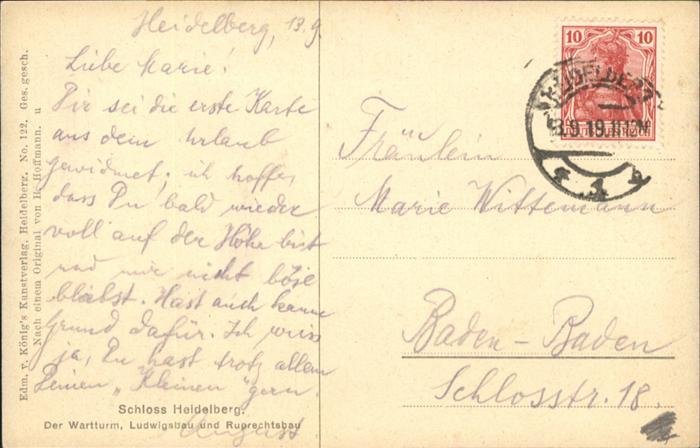 Heidelberg, 13.9.
Liebe Marie!
Dir sei die erste Karte
aus dem Urlaub
gewidmet; ich hoffe,
dass Du bald wieder
voll auf der Höhe bist
und mir nicht böse
bleibst. Hast auch keinen
Grund dafür. Ich weiss
ja, Du hast trotz allem
Deinen „Kleinen" gern.
August
Schloss Heidelberg.
Der Wartturm, Ludwigsbau und Ruprechtsbau
Edm. v. König's Kunstverlag, Heidelberg. No. 122. Ges. gesch.
Nach einem Original von H. Hoffmann. u
10 10
HEIDELBERG
9.19.11
1
Fräulein
Marie Wittemann
Baden-Baden
Schlosstr. 18.